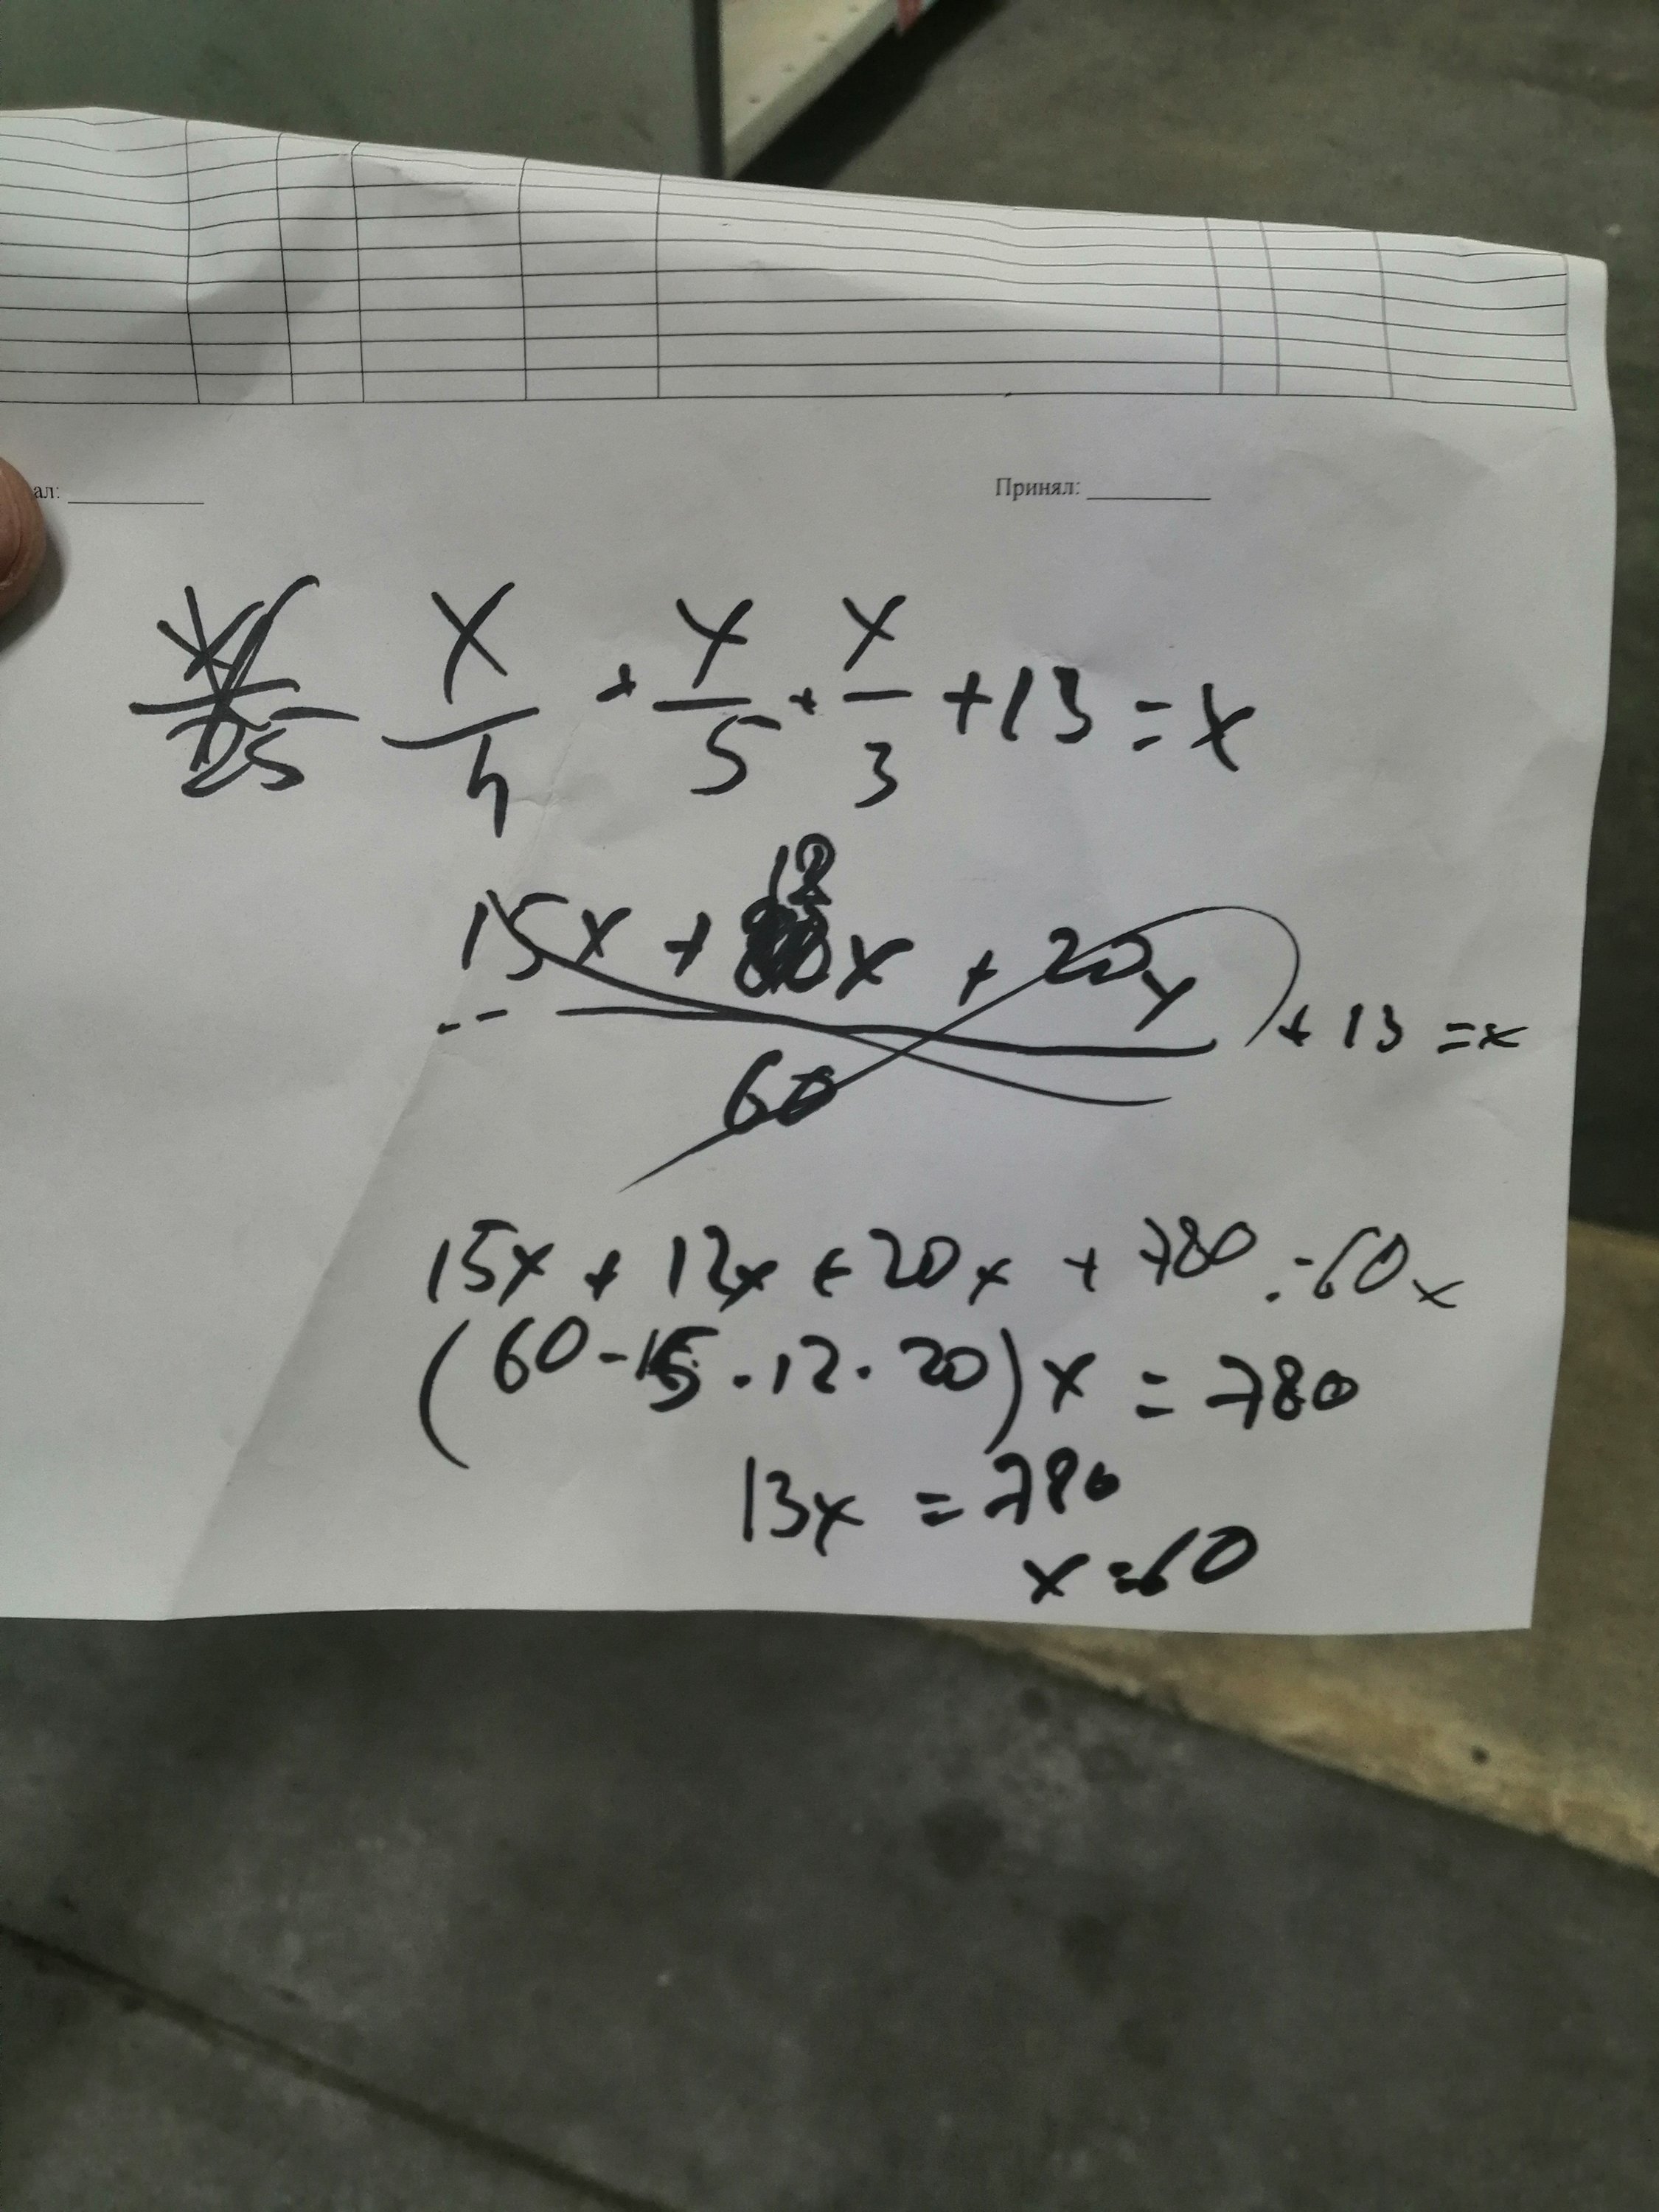 ал: ________ Принял: ________
x/4 + x/5 + x/3 + 13 = x
15x + 12x + 20x + 13 = x
60
15x + 12x + 20x + 780 = 60x
(60 - 15 - 12 - 20) x = 780
13x = 780
x = 60